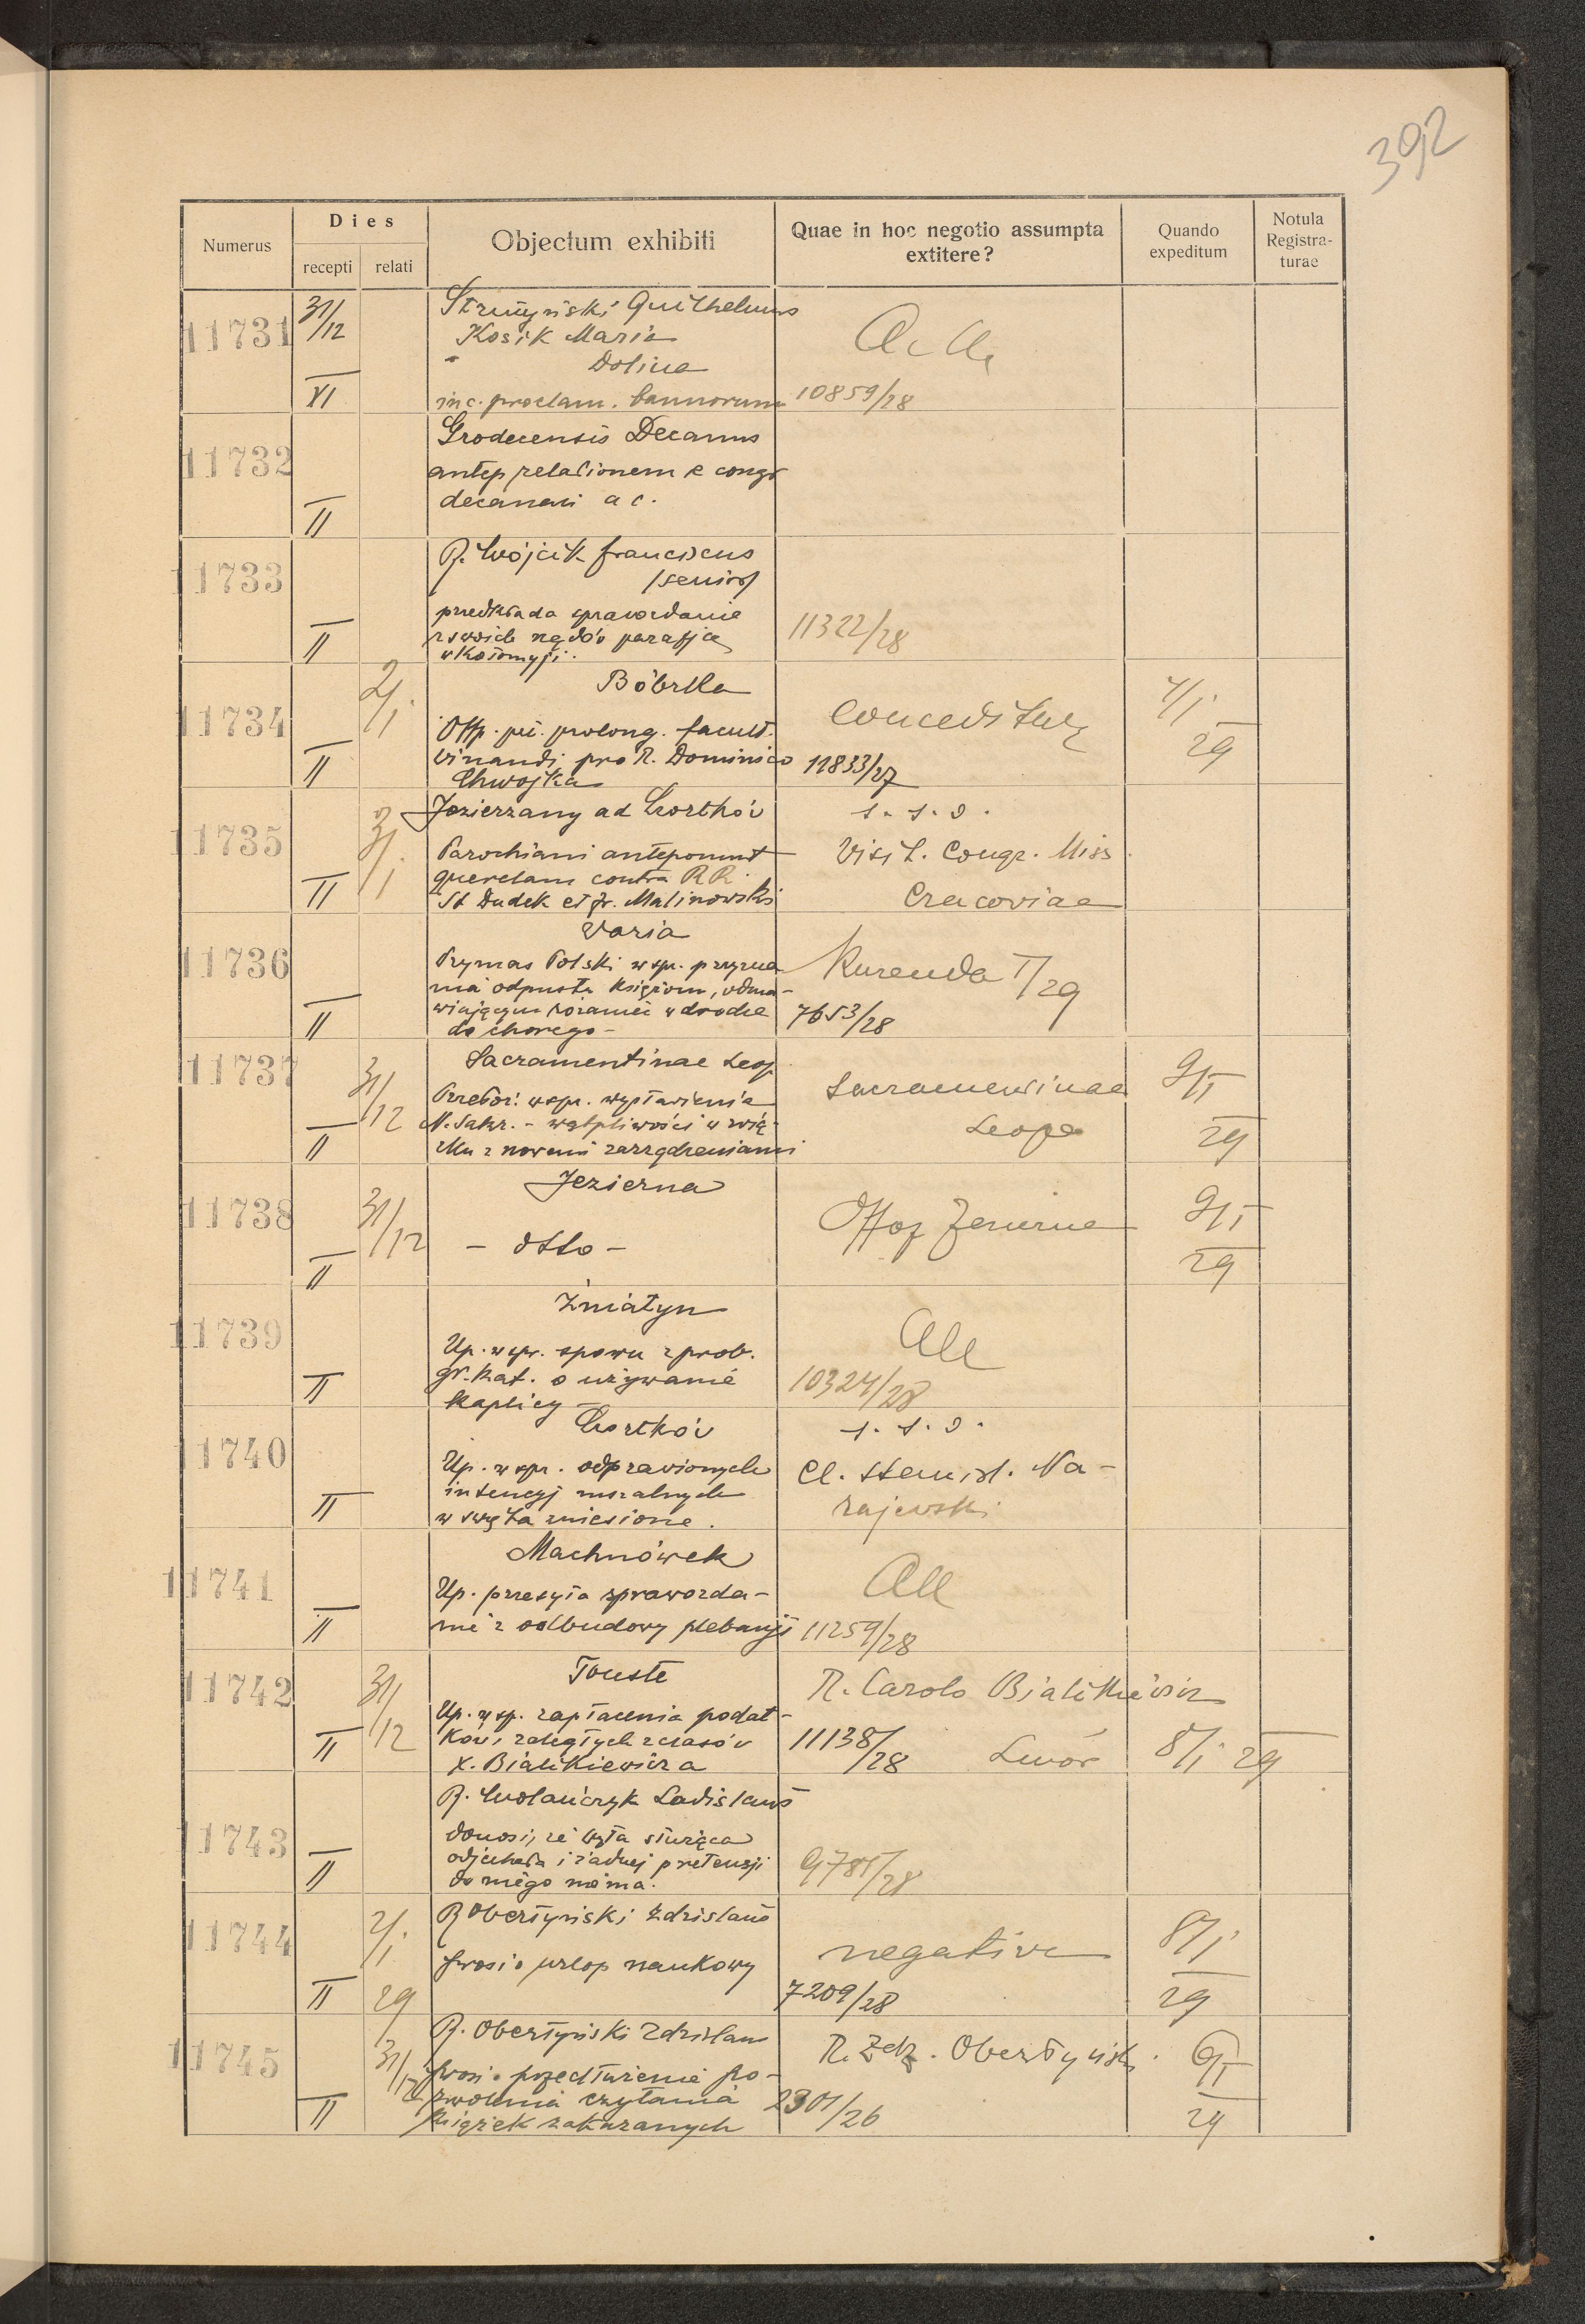 392
Numerus
Dies
recepti relati
Objectum exhibiti
Quae in hoc negotio assumpta
extitere?
Quando
expeditum
Notula
Registra-
turae
11731
31/12
VI
Kosik Maria
Dolina
in c. proclam. bannorum
10859/28
11732
II
Grodecensis Decanus
antep relationem e congr
decanali a c.
11733
II
R. Wójcik Franciscus
/senior/
przedkłada sprawozdanie
z swoich rządów parafją
w Kołomyji.
11322/28
11734
2/I
II
Bóbrka
Offp. pet. prolong. facult.
binandi pro R. Dominico
Chwojka
Conceditur
11833/27
4/I
29
11735
3/I
II
Jezierzany ad Czortków
Parochiani anteponunt
querelam contra RR.
St Dudek et Fr. Malinowski
s. s. o.
Visit. Congr. Miss.
Cracoviae
11736
II
Varia
Prymas Polski w spr. przyzna
nia odpustu księżom, odma-
wiającym różaniec w drodze
do chorego -
Kurenda I/29
7653/28
11737
31/12
II
Sacramentinae Leop.
Przeor. w spr. wystawienia
N. Sakr. - wątpliwości w zwią
zku z nowemi zarządzeniami
Sacramentinae
Leop.
9/I
29
11738
31/12
II
Jezierna
- dtto -
Offoz Jezierna
9/I
29
11739
II
Żniatyn
Up. w spr. sporu z prob.
gr. kat. o używanie
kaplicy -
All
10324/28
11740
II
Czortków
Up. w spr. odprawionych
intencyj mszalnych
w święta zniesione.
s. s. o.
Cl. Stanisł. Na-
rajewski
11741
II
Machnówek
Up. przesyła sprawozda-
nie z odbudowy plebanji
All
11259/28
11742
31/12
II
Touste
Up. w sp. zapłacenia podat-
ków, zaległych z czasów
X. Bialikiewicza
R. Carolo Bialikiewicz
11138/28
Lwów
8/I 29
11743
II
R. Wolańczyk Ladislaus
donosi, że była służąca
odjechała i żadnej pretensji
do niego nie ma.
9785/28
11744
2/I
29
II
R Obertyński Zdzislaus
prosi o urlop naukowy
negative
7209/28
8/I
29
11745
31/12
II
R. Obertyński Zdzislaus
prosi o przedłużenie po-
zwolenia czytania
książek zakazanych
R. Zdz. Obertyński.
2301/26
9/I
29